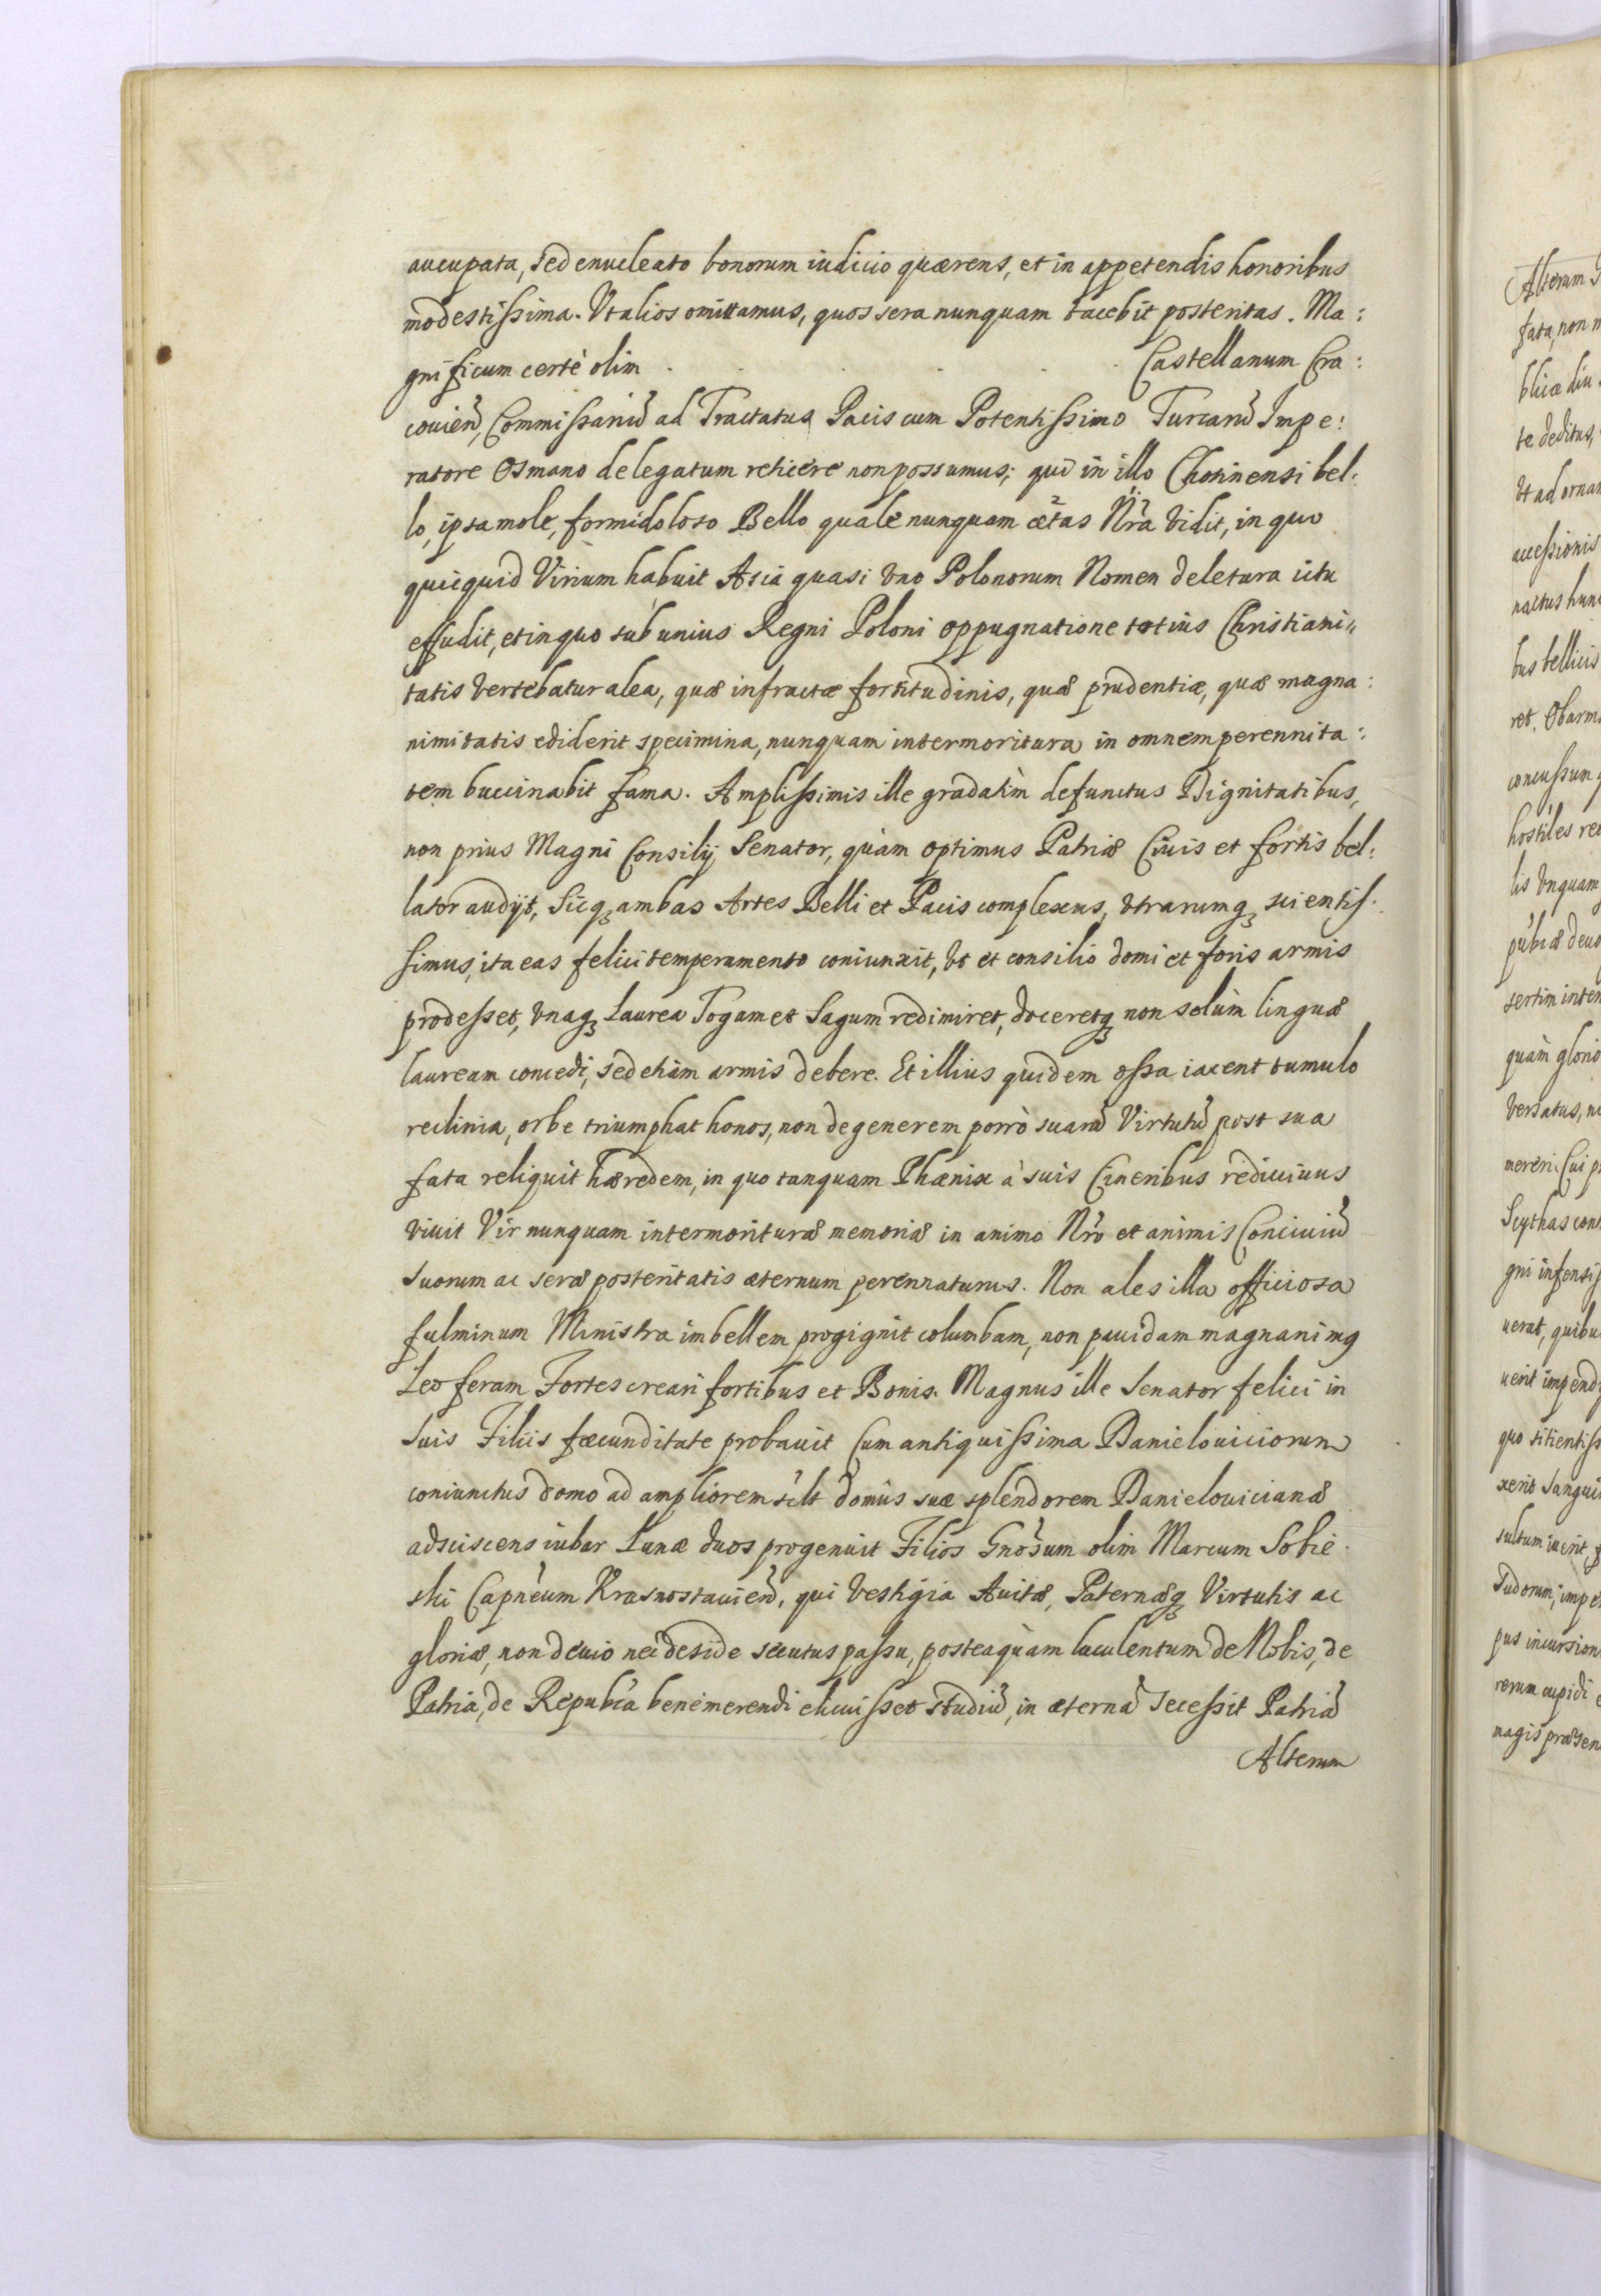 aucupata, sed enucleato bonorum iudicio quærens, et in appetendis honoribus
modestißima. Vt alios omittamus, quos sera nunquam tacebit posteritas. Ma:
gnificum certè olim . . . . Castellanum Cra:
couien̄, Commißariū ad Tractatus Pacis cum Potentißimo Turcarū Impe:
ratore Osmano delegatum reticere non possumus; qui in illo Chotinensi bel:
lo, ipsa mole, formidoloso Bello quale nunquam ætas Nr̃a vidit, in quo
quicquid Virium habuit Asia quasi vno Polonorum Nomen deletura ictu
effudit, et in quo sub unius Regni Poloni oppugnatione totius Christiani„
tatis vertebatur alea, quæ infractæ fortitudinis, quæ prudentiæ, quæ magna:
nimitatis ediderit specimina, nunquam intermoritura in omnem perennita:
tem buccinabit fama. Amplißimis ille gradatìm defunctus Dignitatibus,
non prius Magni Consilij Senator, quàm optimus Patriæ Ciuis et fortis bel:
lator audijt, Sicq; ambas Artes Belli et Pacis complexus, vtrarumq; scientis:
simus, ita eas felici temperamento coniunxit, vt et consilio domi et foris armis
prodesset, vnaq; Laurea Togam et Sagum redimiret, doceretq; non solùm linguæ
lauream concedi, sed etiàm armis debere. Et illius quidem ossa iacent tumulo
reclinia, orbe triumphat honos, non degenerem porrò suarū Virtutū post sua
fata reliquit hæredem, in quo tanquam Phænix à suis Cineribus rediuiuus
viuit Vir nunquam intermorituræ memoriæ in animo Nr̃o et animis Conciuiū
suorum ac seræ posteritatis æternum perennaturus. Non ales illa officiosa
fulminum Ministra imbellem progignit columbam, non pauidam magnanimq
Leo feram Fortes creari fortibus et Bonis. Magnus ille Senator felici in
suis Filiis fæcunditate probauit Cum antiquißima Danielouiciorum
coniunctus domo ad ampliorem scl̃t domûs suæ splendorem Danielouicianæ
adsciscens iubar Lunæ duos progenuit Filios Gnõsum olim Marcum Sobie:
ski Capnẽum Krasnostauien̄, qui vestigia Auitæ, Paternæq; Virtutis ac
gloriæ, non deuio nec deside secutus paßu, posteaquàm luculentum de Nobis, de
Patria, de Republ̃a benè merendi elicuißet studiū, in æternā secessit Patriā
Alterum